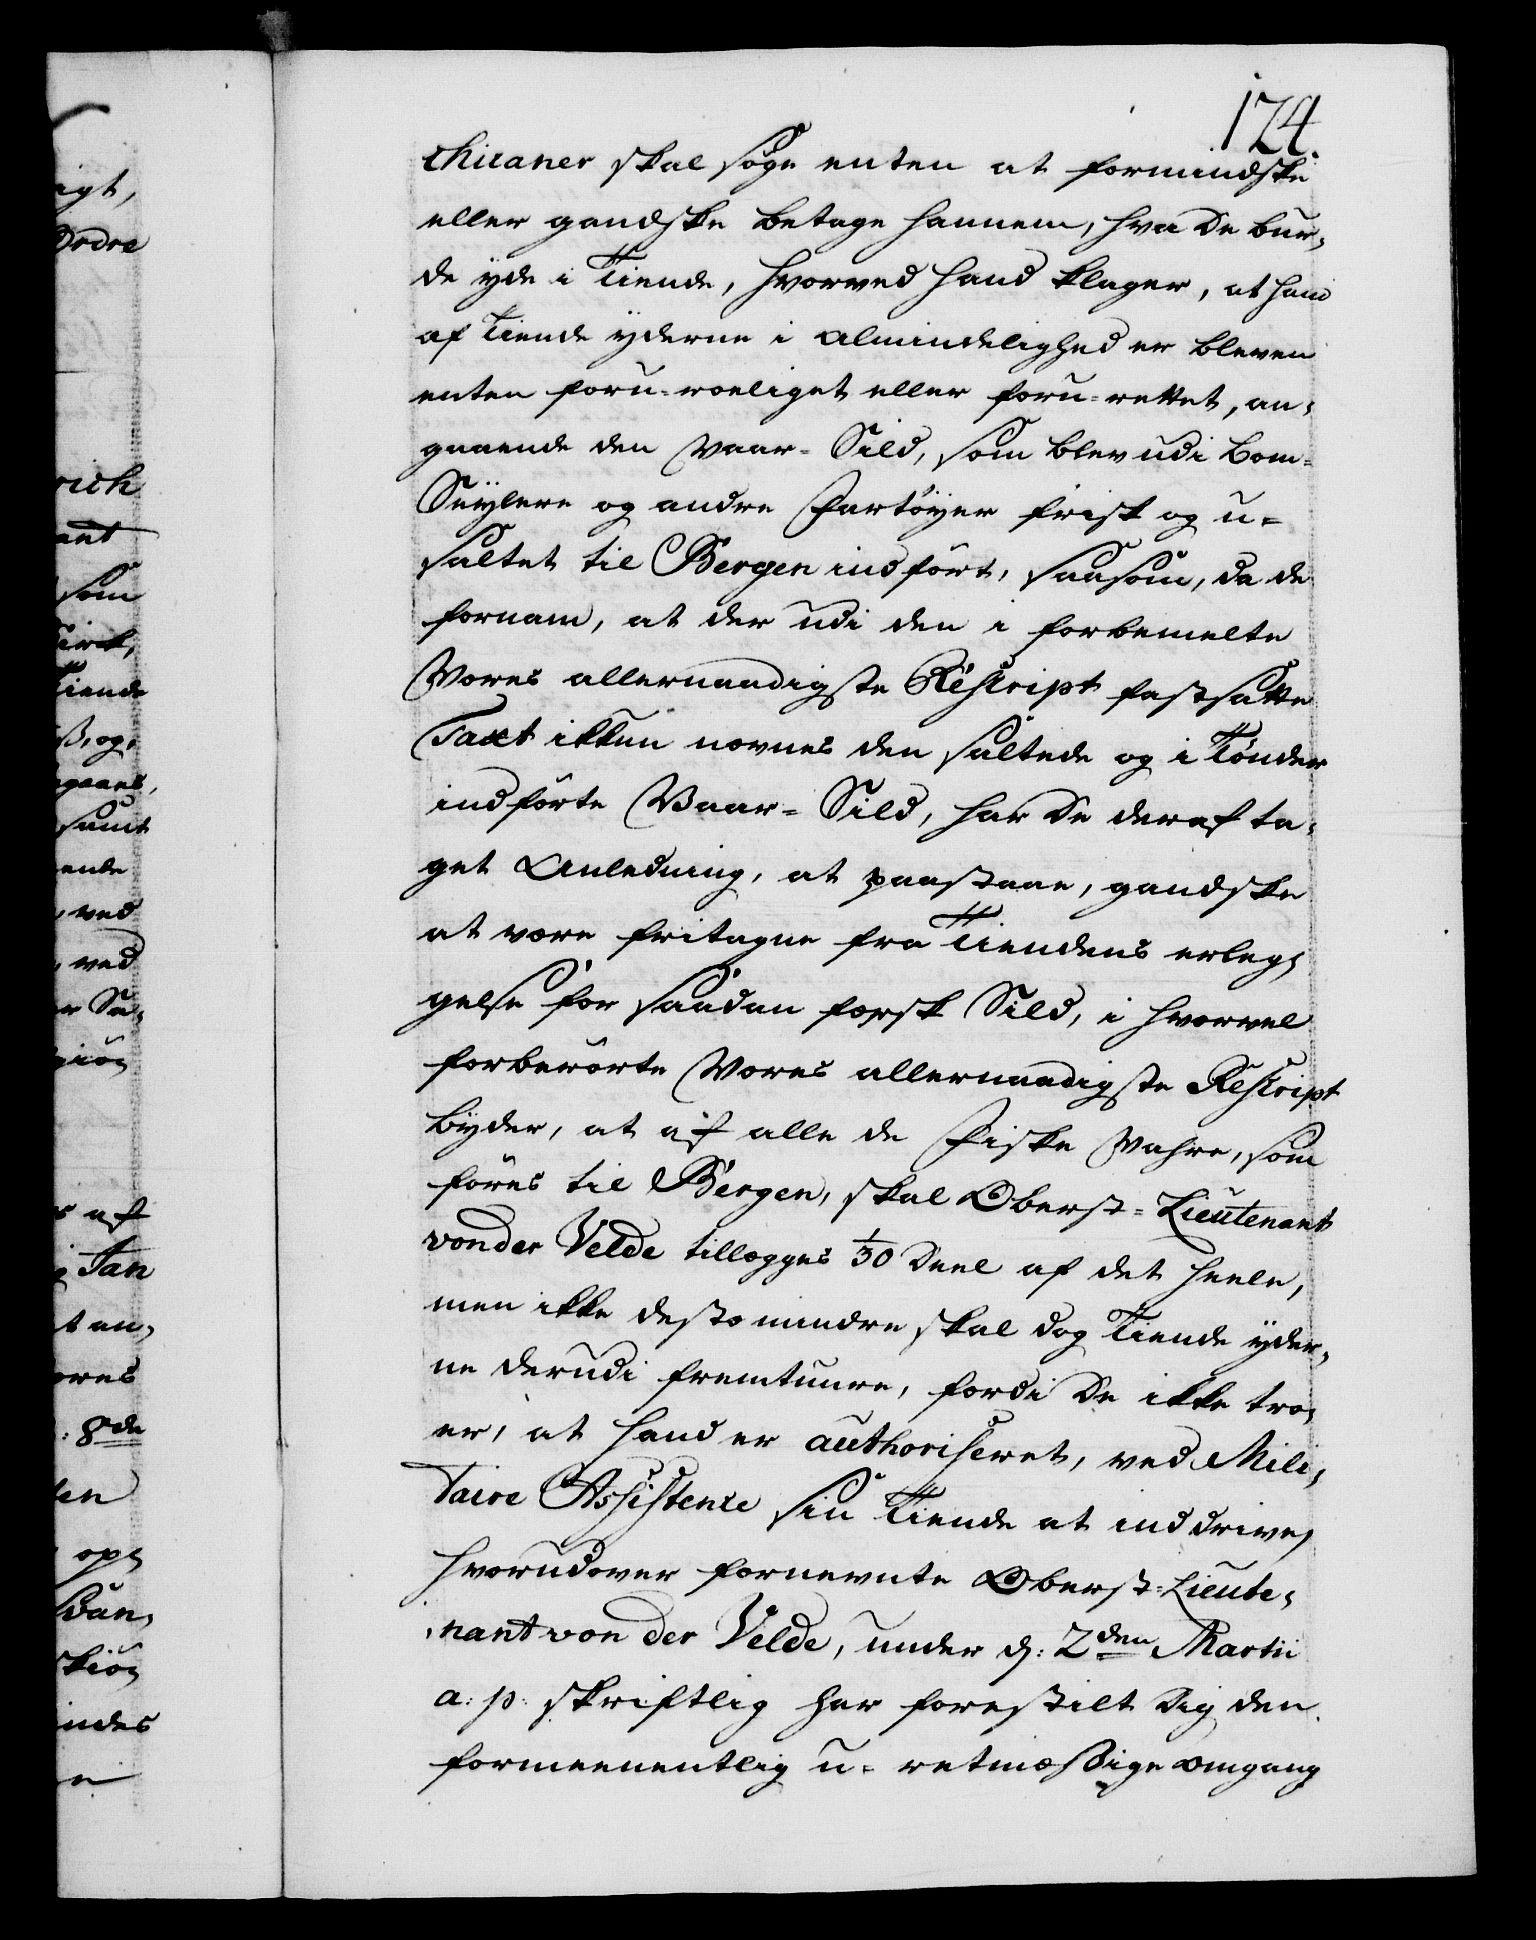 124.
chicaner skal søge enten at formindske
eller gandske betage hannem, hva De bur,
de yde i Tiende, hvorved hand klager, at hand
af Tiende yderne i almindelighed er bleven
enten foru-roeliget eller foru-rettet, an,
gaaende den Vaar-Sild, som blev udi Bom-
Seylere og andre Fartøyer frisk og u-
saltet til Bergen indført, saasom, da de
fornam, at der udi den i forbemelte
Vores allernaadigste Rescript fastsatte
Taxt ikkun nævnes den saltede og i Tønder
indførte Vaar-Sild, har De deraf ta,
get Anledning, at paastaae, gandske
at være fritagne fra Tiendens erleg,
gelse for saadan forsk Sild, i hvorvel
forberørte Vores allernaadigste Rescript
byder, at af alle de Fiske Vahre, som
føres til Bergen, skal Oberst-Lieutenant
von der Velde tillægges 1/30 Deel af det heele,
men ikke desto mindre skal dog Tiende yder,
ne derudi fremtuure, fordi De ikke tro,
er, at hand er authoriseret, ved Mili,
taire Assistence sin Tiende at inddrive,
hvorudover fornevnte Oberst-Lieute,
nant von der Velde, under d: 2den Martii
a: p: skriftlig har forestilt Dig den
formeenentlig u-retmæssige omgang
igt,
Ordre
rich
ant
som
Tiende
ss, og,
gaaes,
samt
ende
ved
ved
er Sa,
giø,
s af
Jan
t an,
ores
: 8de
en
op,
skiø,
indes